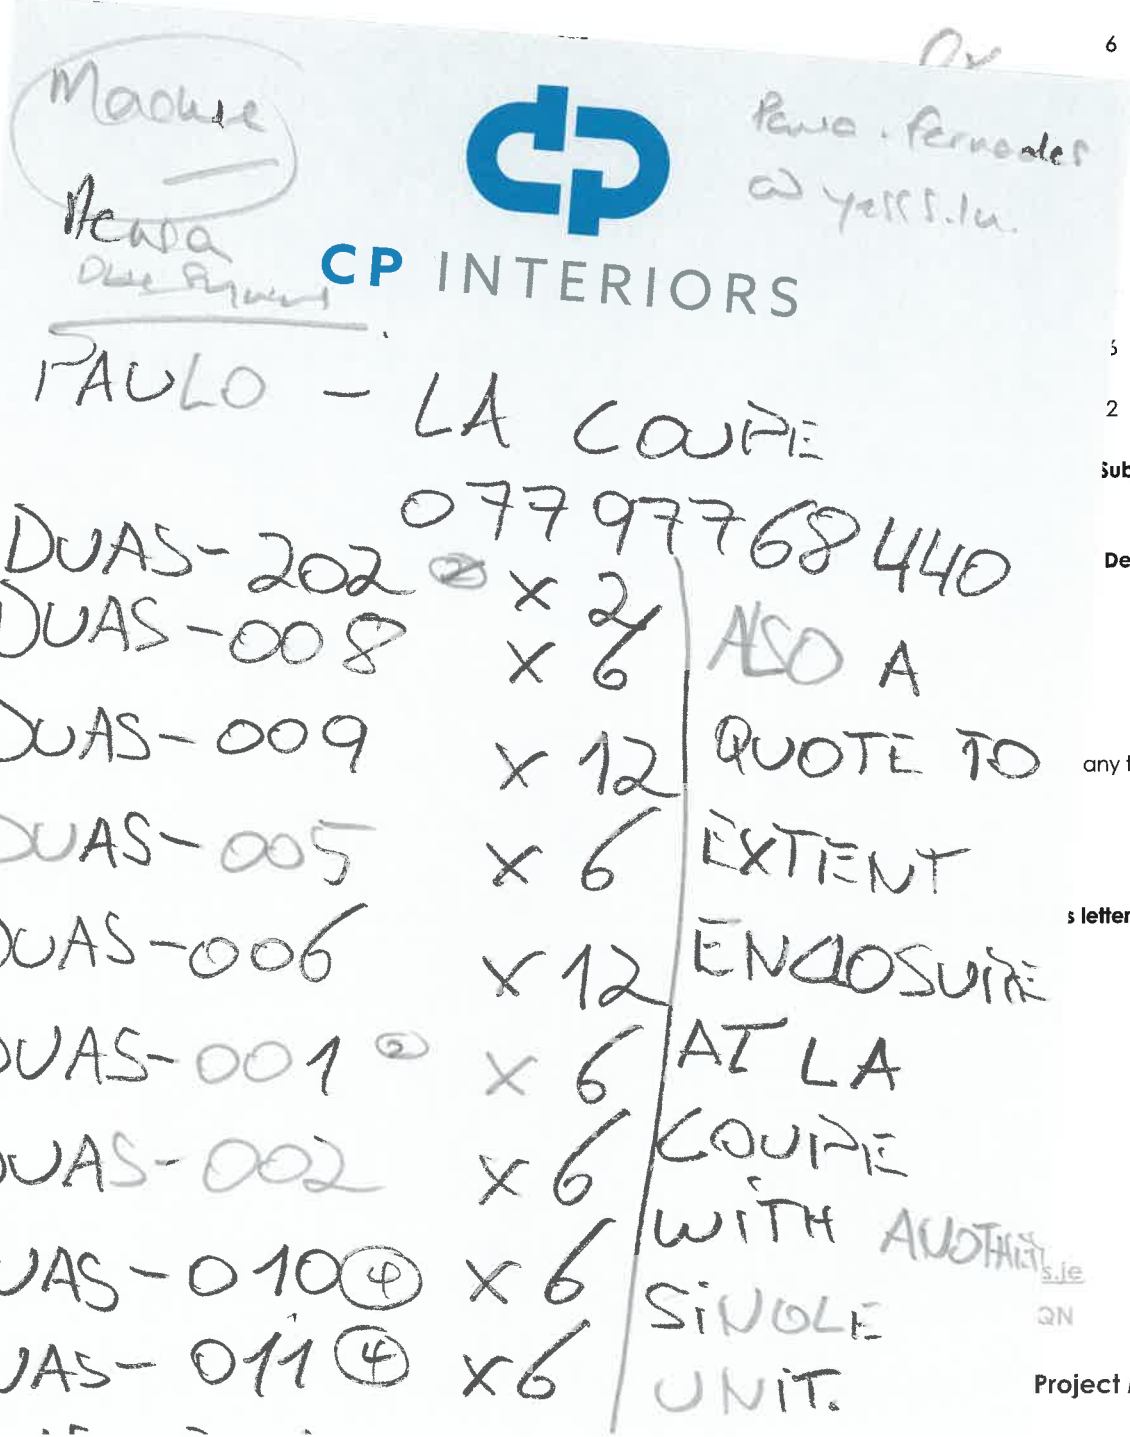 6
CP INTERIORS
PAULO - LA COUPE
07797768440
DUAS-202 ② x 2
DUAS-008 x 6
DUAS-009 x 12
DUAS-005 x 6
DUAS-006 x 12
DUAS-001 ② x 6
DUAS-002 x 6
UAS-010 ④ x 6
UAS-011 ④ x6
ALSO A
QUOTE TO
EXTENT
ENCLOSURE
AT LA
COUPE
WITH ANOTHER
SINGLE
UNIT.
2
Sub
De
any t
s letter
s.je
QN
Project